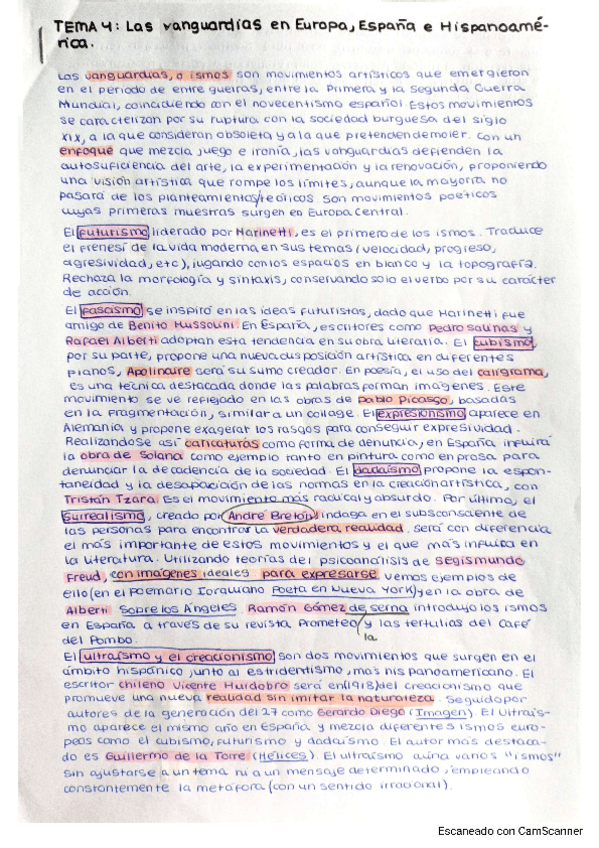 TEMA 4: Las vanguardias en Europa, España e Hispanoamé-
rica.
Las vanguardias, o ismos son movimientos artísticos que emergieron
en el periodo de entre guerras, entre la Primera y la Segunda Guerra
Mundial, coincidiendo con el novecentismo español. Estos movimientos
se caracterizan por su ruptura con la sociedad burguesa del siglo
XIX, a la que consideran obsoleta y a la que pretenden demoler. Con un
enfoque que mezcla juego e ironía, las vanguardias defienden la
autosuficiencia del arte, la experimentación y la renovación, proponiendo
una visión artística que rompe los límites, aunque la mayoría no
pasará de los planteamientos/teóricos. Son movimientos poéticos
cuyas primeras muestras surgen en Europa Central.
El futurismo liderado por Marinetti, es el primero de los ismos. Traduce
el frenesí de la vida moderna en sus temas (velocidad, progreso,
agresividad, etc), jugando con los espacios en blanco y la topografía.
Rechaza la morfología y sintaxis, conservando solo el verbo por su carácter
de acción.
El fascismo se inspiró en las ideas futuristas, dado que Marinetti fue
amigo de Benito Mussolini. En España, escritores como Pedro Salinas y
Rafael Alberti adoptan esta tendencia en su obra literaria. El cubismo,
por su parte, propone una nueva disposición artística en diferentes
planos, Apolinaire será su sumo creador. En poesía, el uso del caligrama,
es una técnica destacada donde las palabras forman imágenes. Este
movimiento se ve reflejado en las obras de Pablo Picasso, basadas
en la fragmentación, similar a un collage. El expresionismo aparece en
Alemania y propone exagerar los rasgos para conseguir expresividad.
Realizandose así caricaturas como forma de denuncia, en España influirá
la obra de Solana como ejemplo tanto en pintura como en prosa para
denunciar la decadencia de la sociedad. El dadaísmo propone la espon-
taneidad y la desaparición de las normas en la creación artística, con
Tristán Tzara. Es el movimiento más radical y absurdo. Por último, el
surrealismo, creado por André Breton, indaga en el subsconsciente de
las personas para encontrar la verdadera realidad. Será con diferencia
el más importante de estos movimientos y el que más influirá en
la literatura. Utilizando teorías del psicoanálisis de Segismundo
Freud, con imágenes ideales para expresarse vemos ejemplos de
ello (en el poemario lorquiano Poeta en Nueva York) y en la obra de
Alberti Sobre los Ángeles. Ramón Gómez de serna introdujo los ismos
en España a través de su revista Prometeo y las tertulias del Café
la
del Pombo.
El ultraísmo y el creacionismo son dos movimientos que surgen en el
ámbito hispánico junto al estridentismo, más hispanoamericano. El
escritor chileno Vicente Huidobro será en (1918) del creacionismo que
promueve una nueva realidad sin imitar la naturaleza. Seguido por
autores de la generación del 27 como Gerardo Diego (Imagen). El Ultraís-
mo aparece el mismo año en España y mezcla diferentes ismos euro-
peos como el cubismo, futurismo y dadaísmo. El autor más destaca-
do es Guillermo de la Torre (Hélices). El ultraísmo aúna varios "ismos"
sin ajustarse a un tema ni a un mensaje determinado, empleando
constantemente la metáfora (con un sentido irracional).
Escaneado con CamScanner